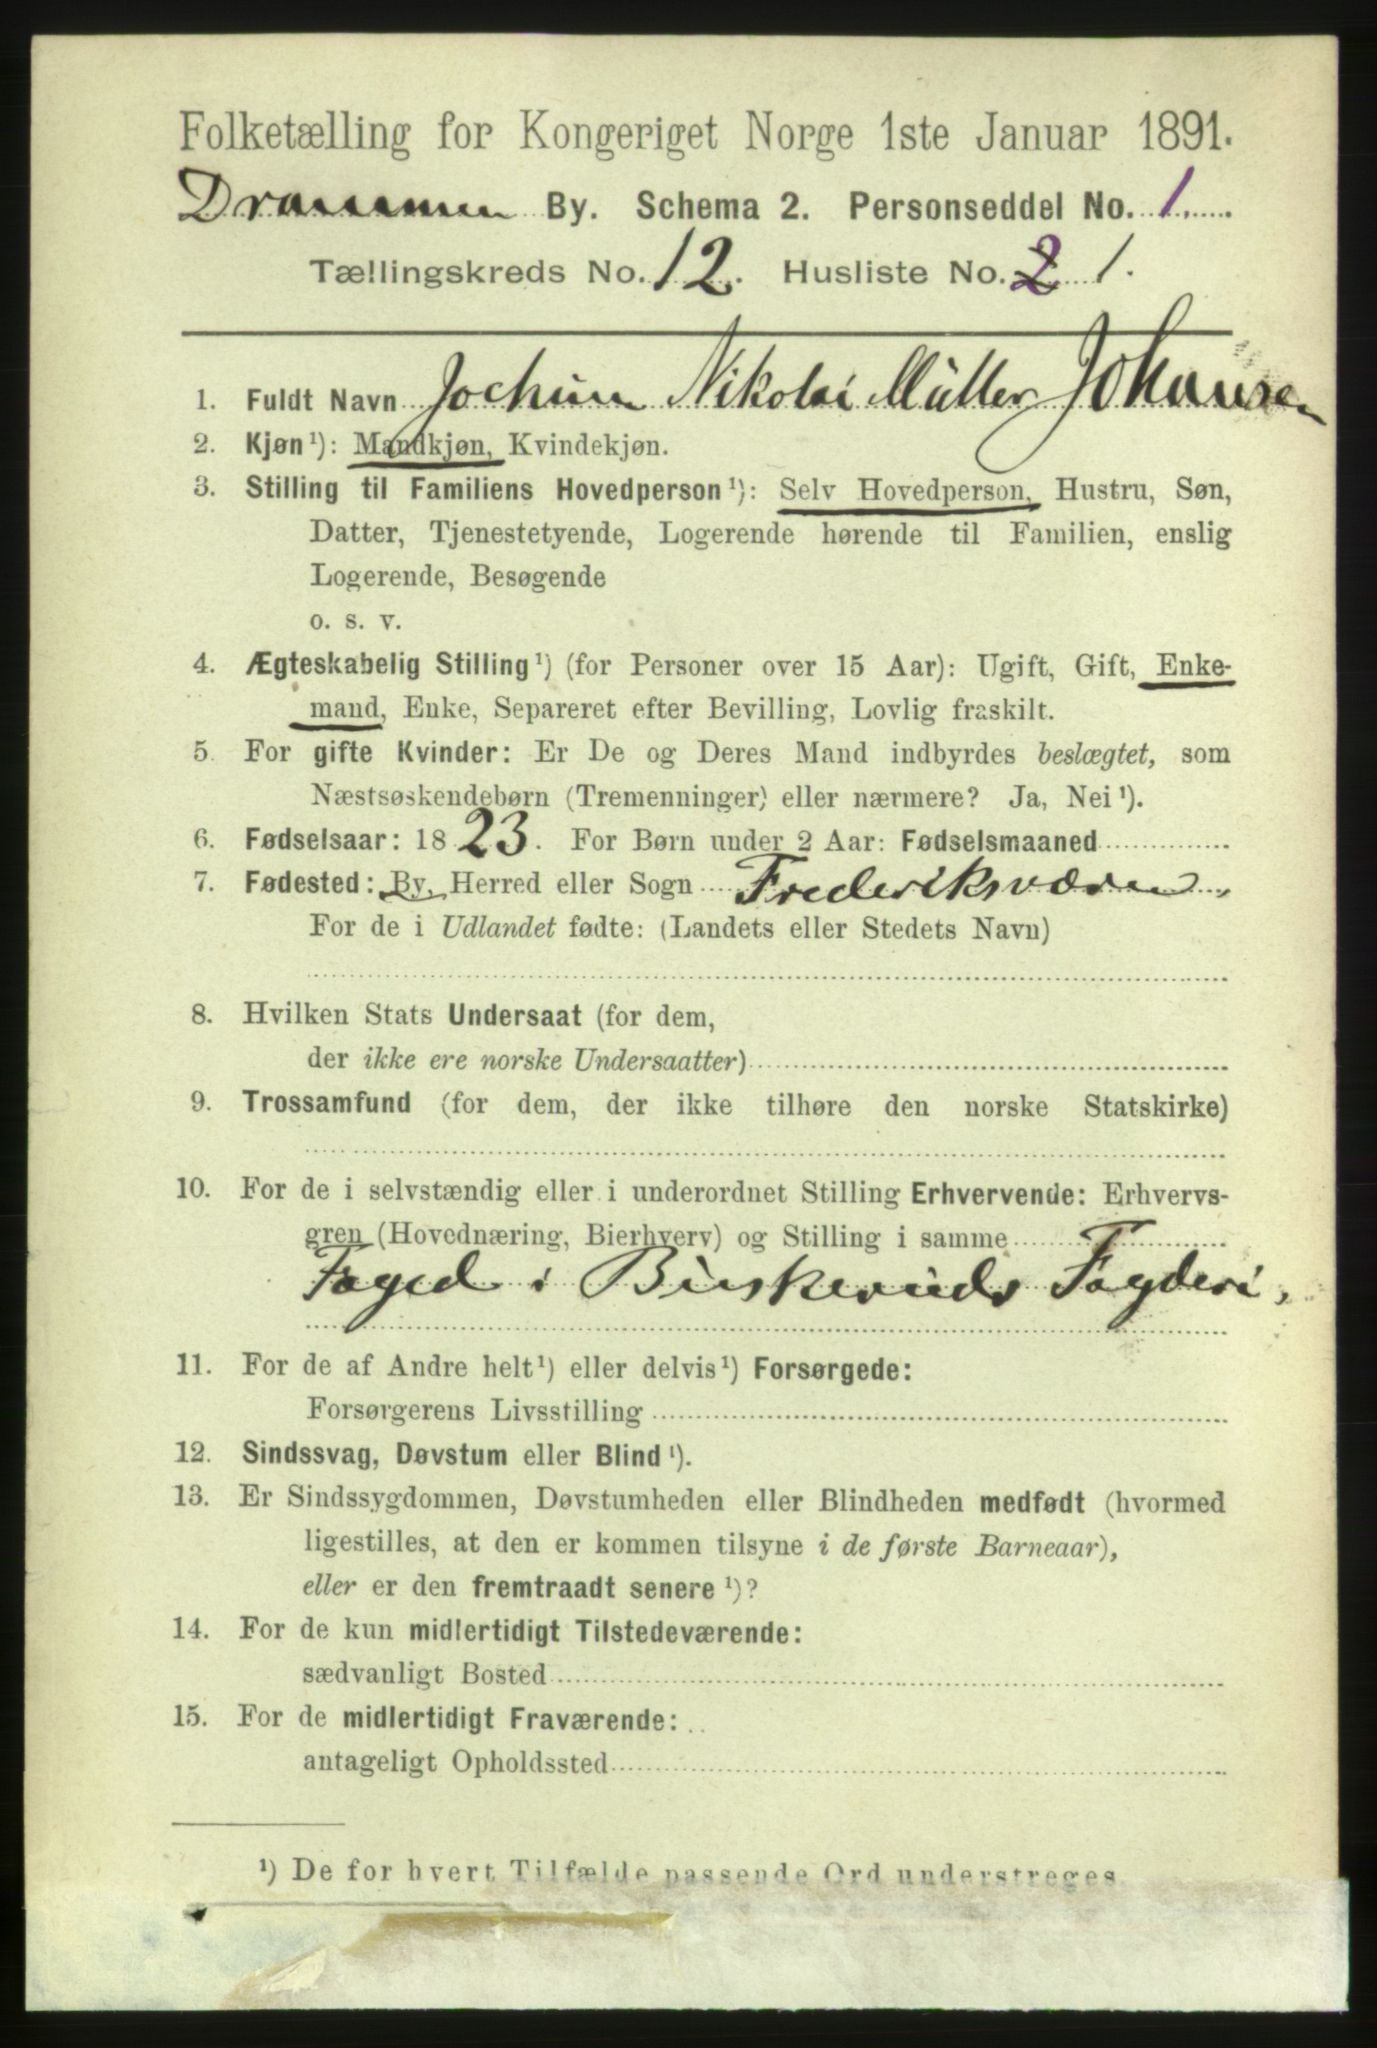 Folketælling for Kongeriget Norge 1ste Januar 1891.
Drammen By. Schema 2. Personseddel No. 1.
Tællingskreds No. 12. Husliste No. 2 1.
1. Fuldt Navn Jochum Nikolai Müller Johansen
2. Kjøn ¹): Mandkjøn, Kvindekjøn.
3. Stilling til Familiens Hovedperson ¹): Selv Hovedperson, Hustru, Søn,
Datter, Tjenestetyende, Logerende hørende til Familien, enslig
Logerende, Besøgende
o. s. v.
4. Ægteskabelig Stilling ¹) (for Personer over 15 Aar): Ugift, Gift, Enke-
mand, Enke, Separeret efter Bevilling, Lovlig fraskilt.
5. For gifte Kvinder: Er De og Deres Mand indbyrdes beslægtet, som
Næstsøskendebørn (Tremenninger) eller nærmere? Ja, Nei ¹).
6. Fødselsaar: 1823. For Børn under 2 Aar: Fødselsmaaned
7. Fødested: By, Herred eller Sogn Frederiksværn,
For de i Udlandet fødte: (Landets eller Stedets Navn)
8. Hvilken Stats Undersaat (for dem,
der ikke ere norske Undersaatter)
9. Trossamfund (for dem, der ikke tilhøre den norske Statskirke)
10. For de i selvstændig eller i underordnet Stilling Erhvervende: Erhvervs-
gren (Hovednæring, Bierhverv) og Stilling i samme
Foged i Buskeruds Fogderi,
11. For de af Andre helt ¹) eller delvis ¹) Forsørgede:
Forsørgerens Livsstilling
12. Sindssvag, Døvstum eller Blind ¹).
13. Er Sindssygdommen, Døvstumheden eller Blindheden medfødt (hvormed
ligestilles, at den er kommen tilsyne i de første Barneaar),
eller er den fremtraadt senere ¹)?
14. For de kun midlertidigt Tilstedeværende:
sædvanligt Bosted
15. For de midlertidigt Fraværende:
antageligt Opholdssted
¹) De for hvert Tilfælde passende Ord understreges.